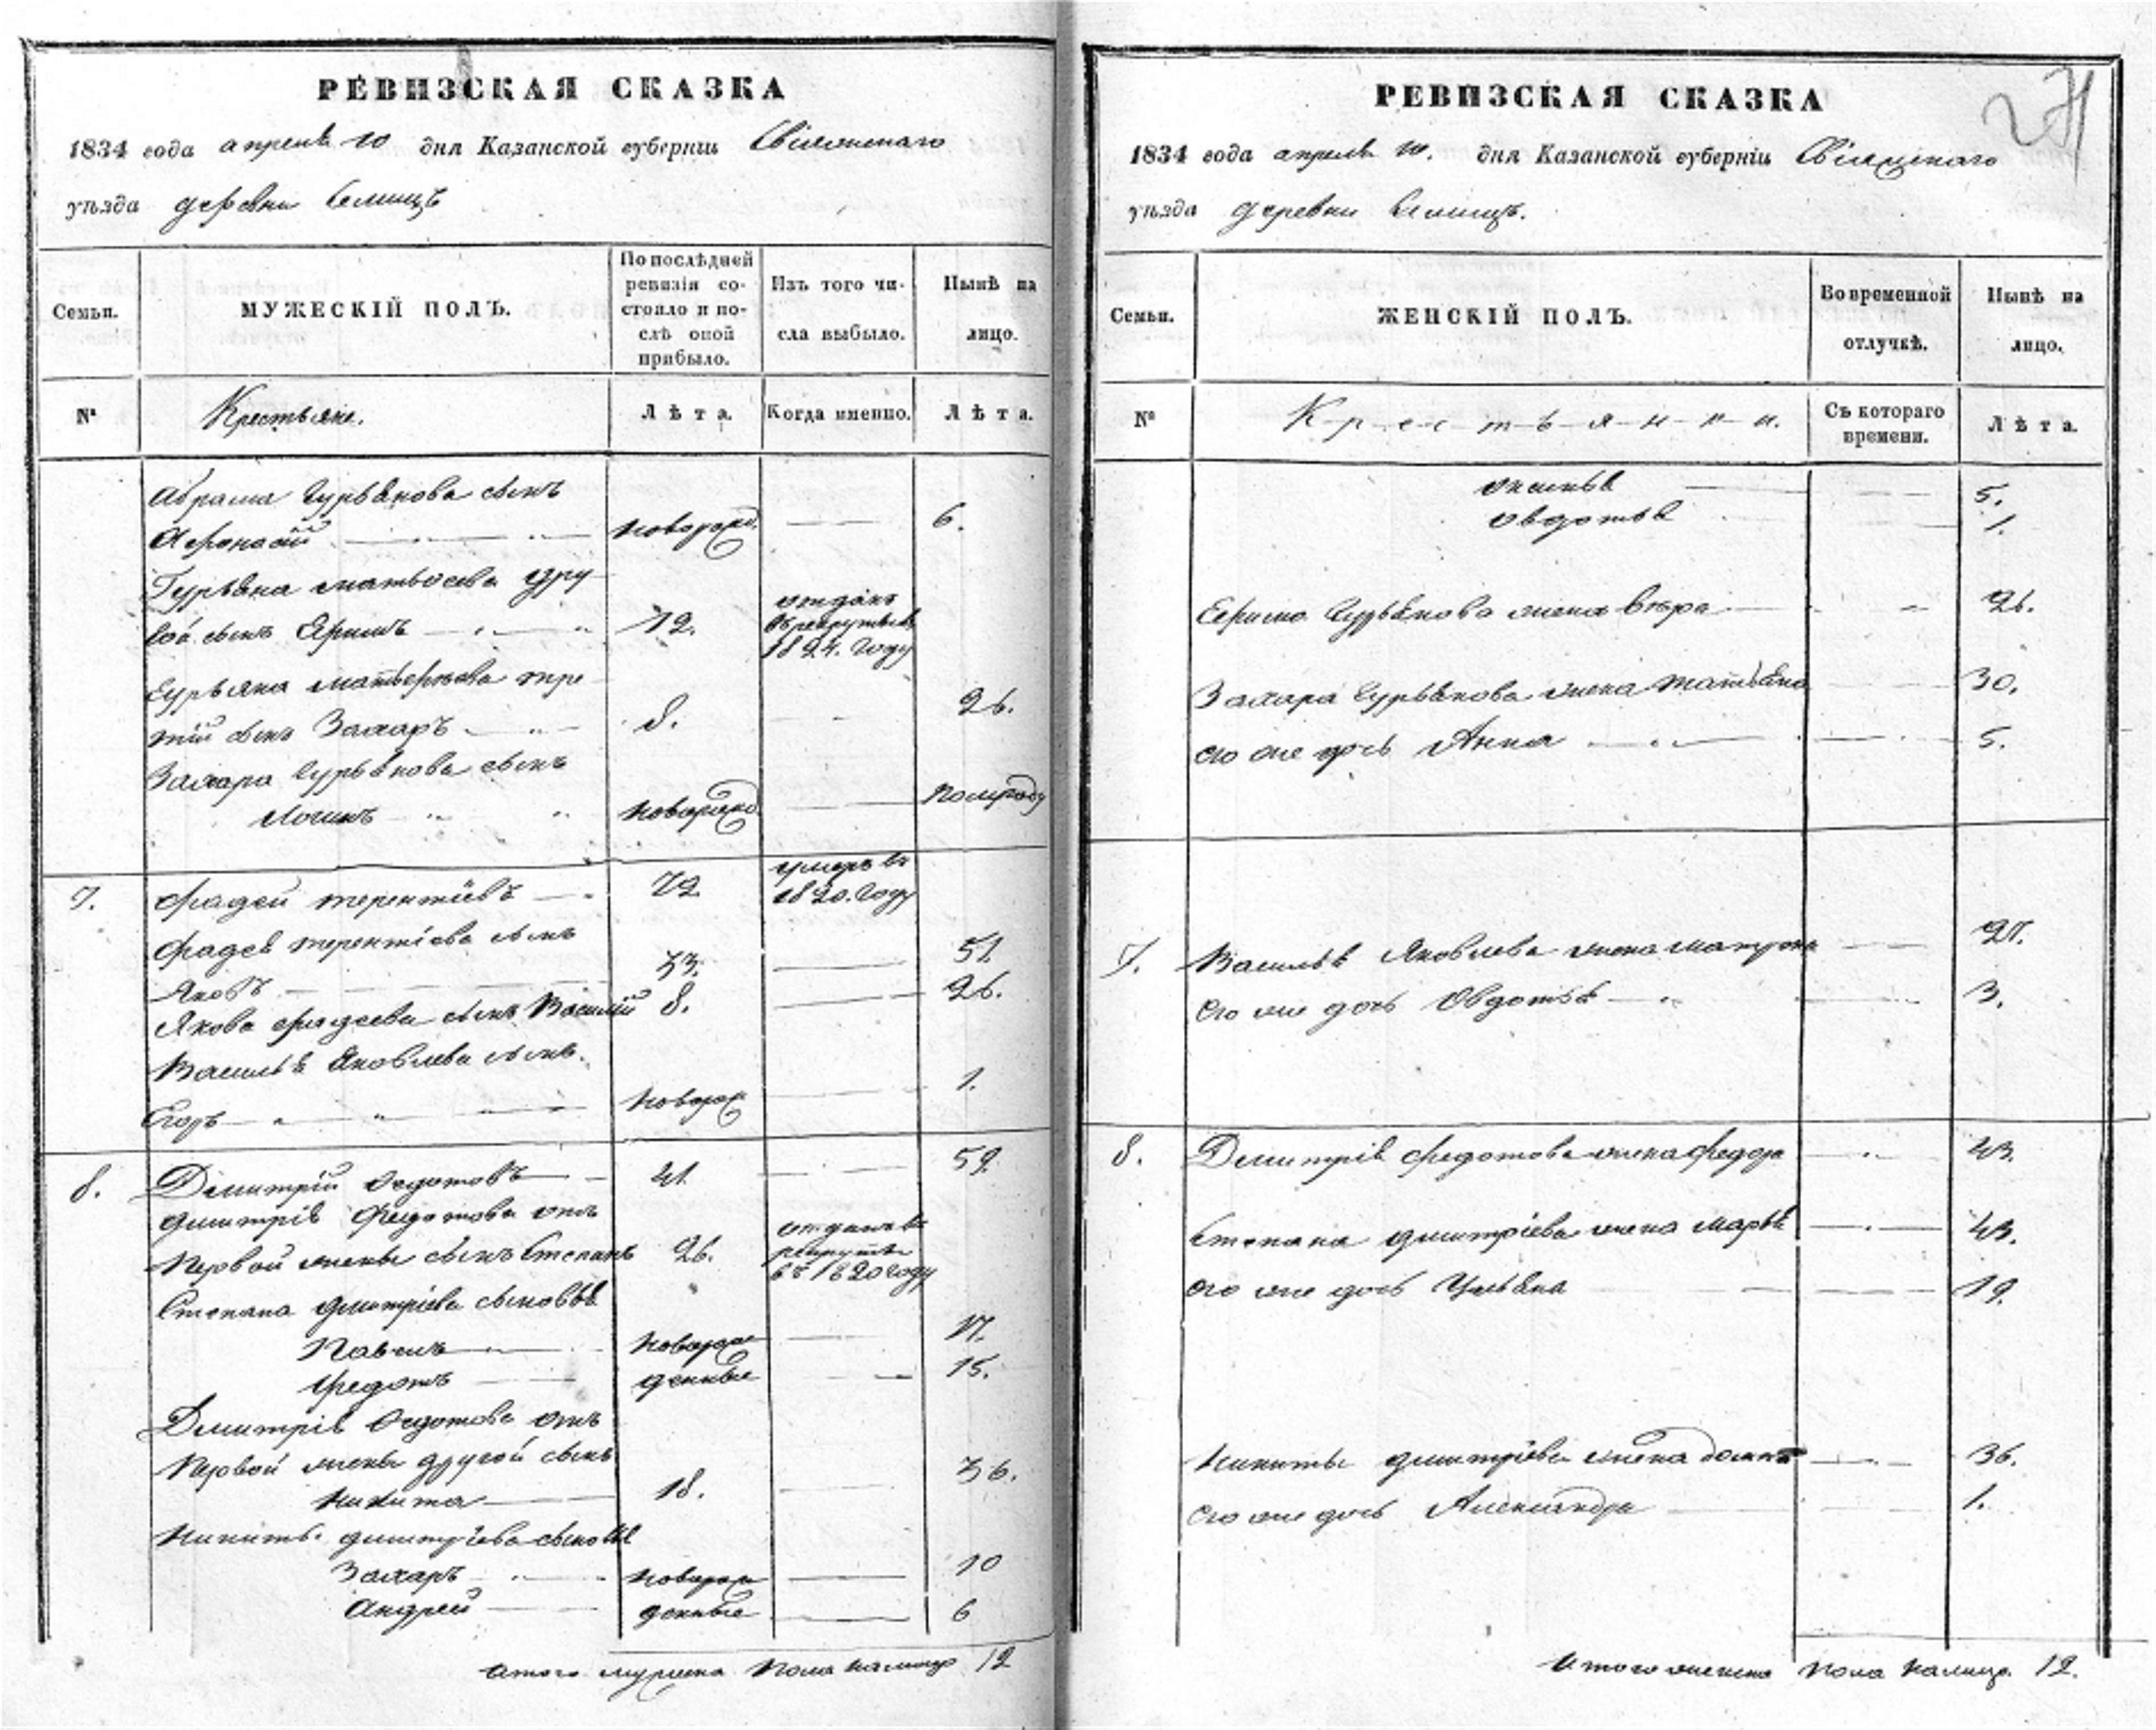 РЕВИЗСКАЯ СКАЗКА
1834 года апреля 10 дня Казанской губерніи Свіяжскаго
уѣзда деревни Селищъ
Семьи.
МУЖЕСКІЙ ПОЛЪ.
По послѣдней
ревизіи со-
стояло и по-
слѣ оной
прибыло.
Изъ того чи-
сла выбыло.
Нынѣ на
лицо.
№
Крестьяне.
Лѣта.
Когда именно.
Лѣта.
Абрама Гурьянова сынъ
Афонасій новорожд. 6.
Гурьяна матвеева дру
гой сынъ Ефимъ 12. отданъ
въ рекруты въ
1824. году
Гурьяна матвеева тре
тій сынъ Захаръ 8. 26.
Захара Гурьянова сынъ
Логинъ новорожд. полгоду
7. Фадей терентіевъ 72 умеръ въ
1820. году
Фадея терентіева сынъ
Яковъ 33. 51.
Якова фадеева сынъ Василій 8. 26.
Василья Яковлева сынъ
Егоръ новорож 1.
8. Димитрій Федотовъ 41 59
димитрія Федотова отъ
первой жены сынъ Степанъ 26. отданъ въ
рекруты
въ 1820 году
Степана дмитріева сыновья
Павелъ новорож 17.
Федотъ денные 15.
Димитрія Федотова отъ
первой жены другой сынъ
Никита 18. 36.
Никиты дмитріева сыновья
Захаръ новорож 10
Андрей денные 6
Итого мужеска пола налицо 12
РЕВИЗСКАЯ СКАЗКА
1834 года апреля 10. дня Казанской губерніи Свіяжскаго
уѣзда деревни Селищъ.
Семьи.
ЖЕНСКІЙ ПОЛЪ.
Во временной
отлучкѣ.
Нынѣ на
лицо.
№
Крестьянки.
Съ котораго
времени.
Лѣта.
Аксинья 5.
Овдотья 1.
Ефима Гурьянова жена Вера 26.
Захара Гурьянова жена Татьяна 30.
его же дочь Анна 5.
7. Василья Яковлева жена матрона 27.
его же дочь Овдотья 3.
8. Димитрія федотова жена федора 43.
Степана дмитріева жена марья 43.
его же дочь Ульяна 19.
Никиты дмитріева жена 36.
его же дочь Александра 1.
Итого женска пола налицо 12.